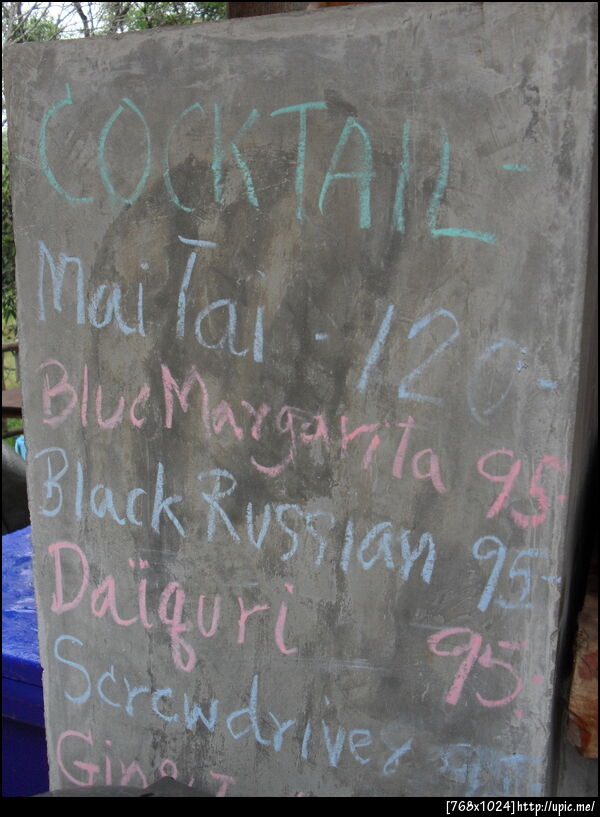 COCKTAIL-
Mai Tai - 120-
Blue Margarita 95-
Black Russian 95-
Daïquri 95.
Screwdriver 95
Gin
[768x1024]http://upic.me/